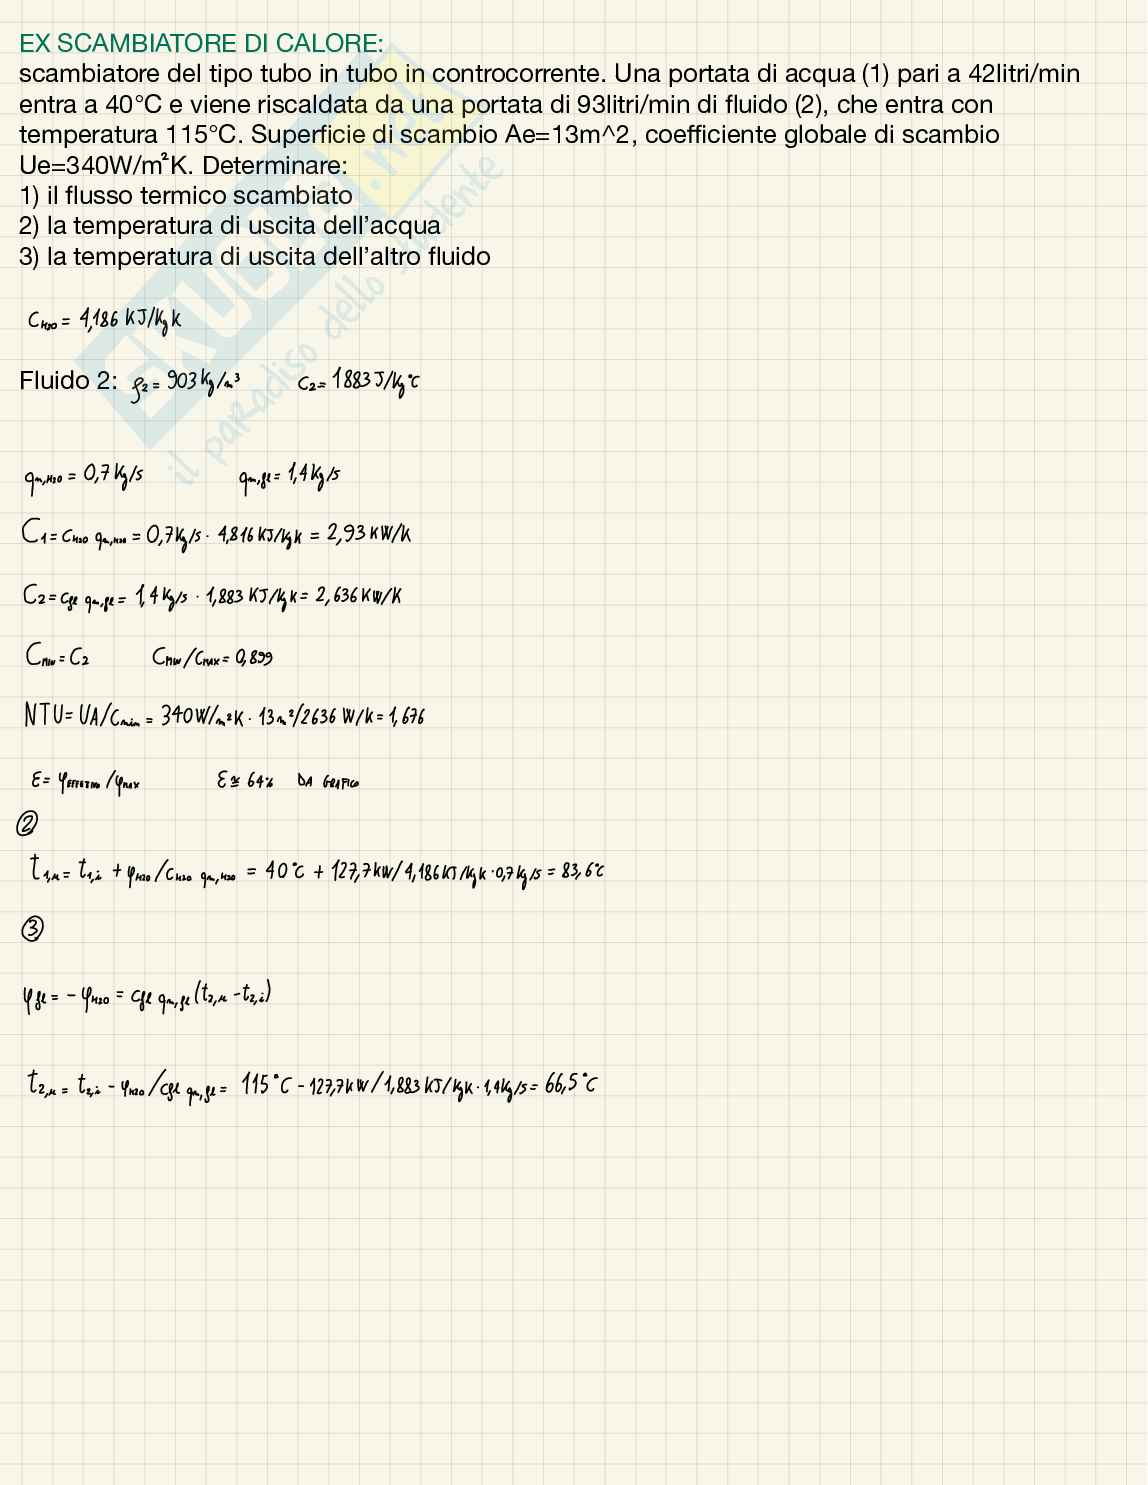 EX SCAMBIATORE DI CALORE:
scambiatore del tipo tubo in tubo in controcorrente. Una portata di acqua (1) pari a 42litri/min
entra a 40°C e viene riscaldata da una portata di 93litri/min di fluido (2), che entra con
temperatura 115°C. Superficie di scambio Ae=13m^2, coefficiente globale di scambio
Ue=340W/m²K. Determinare:
1) il flusso termico scambiato
2) la temperatura di uscita dell'acqua
3) la temperatura di uscita dell'altro fluido
SKUOLA.net
il paradiso dello studente
CH2O = 4,186 KJ/Kg K
Fluido 2: ρ2 = 903 Kg/m³ C2 = 1883 J/Kg°C
qm,H2O = 0,7 Kg/s qm,fl = 1,4 Kg/s
C1 = CH2O qm,H2O = 0,7 Kg/s · 4,816 KJ/Kg K = 2,93 KW/K
C2 = Cfl qm,fl = 1,4 Kg/s · 1,883 KJ/Kg K = 2,636 KW/K
CMIN = C2 CMIN/CMAX = 0,899
NTU = UA/Cmin = 340 W/m²K · 13 m²/2636 W/K = 1,676
ε = φEFFETTIVO/φMAX ε ≅ 64% DA GRAFICO
②
t1,u = t1,i + φH2O/CH2O qm,H2O = 40°C + 127,7 KW/4,186 KJ/Kg K · 0,7 Kg/s = 83,6°C
③
φfl = - φH2O = Cfl qm,fl (t2,u - t2,i)
t2,u = t2,i - φH2O/Cfl qm,fl = 115°C - 127,7 KW/1,883 KJ/Kg K · 1,4 Kg/s = 66,5°C